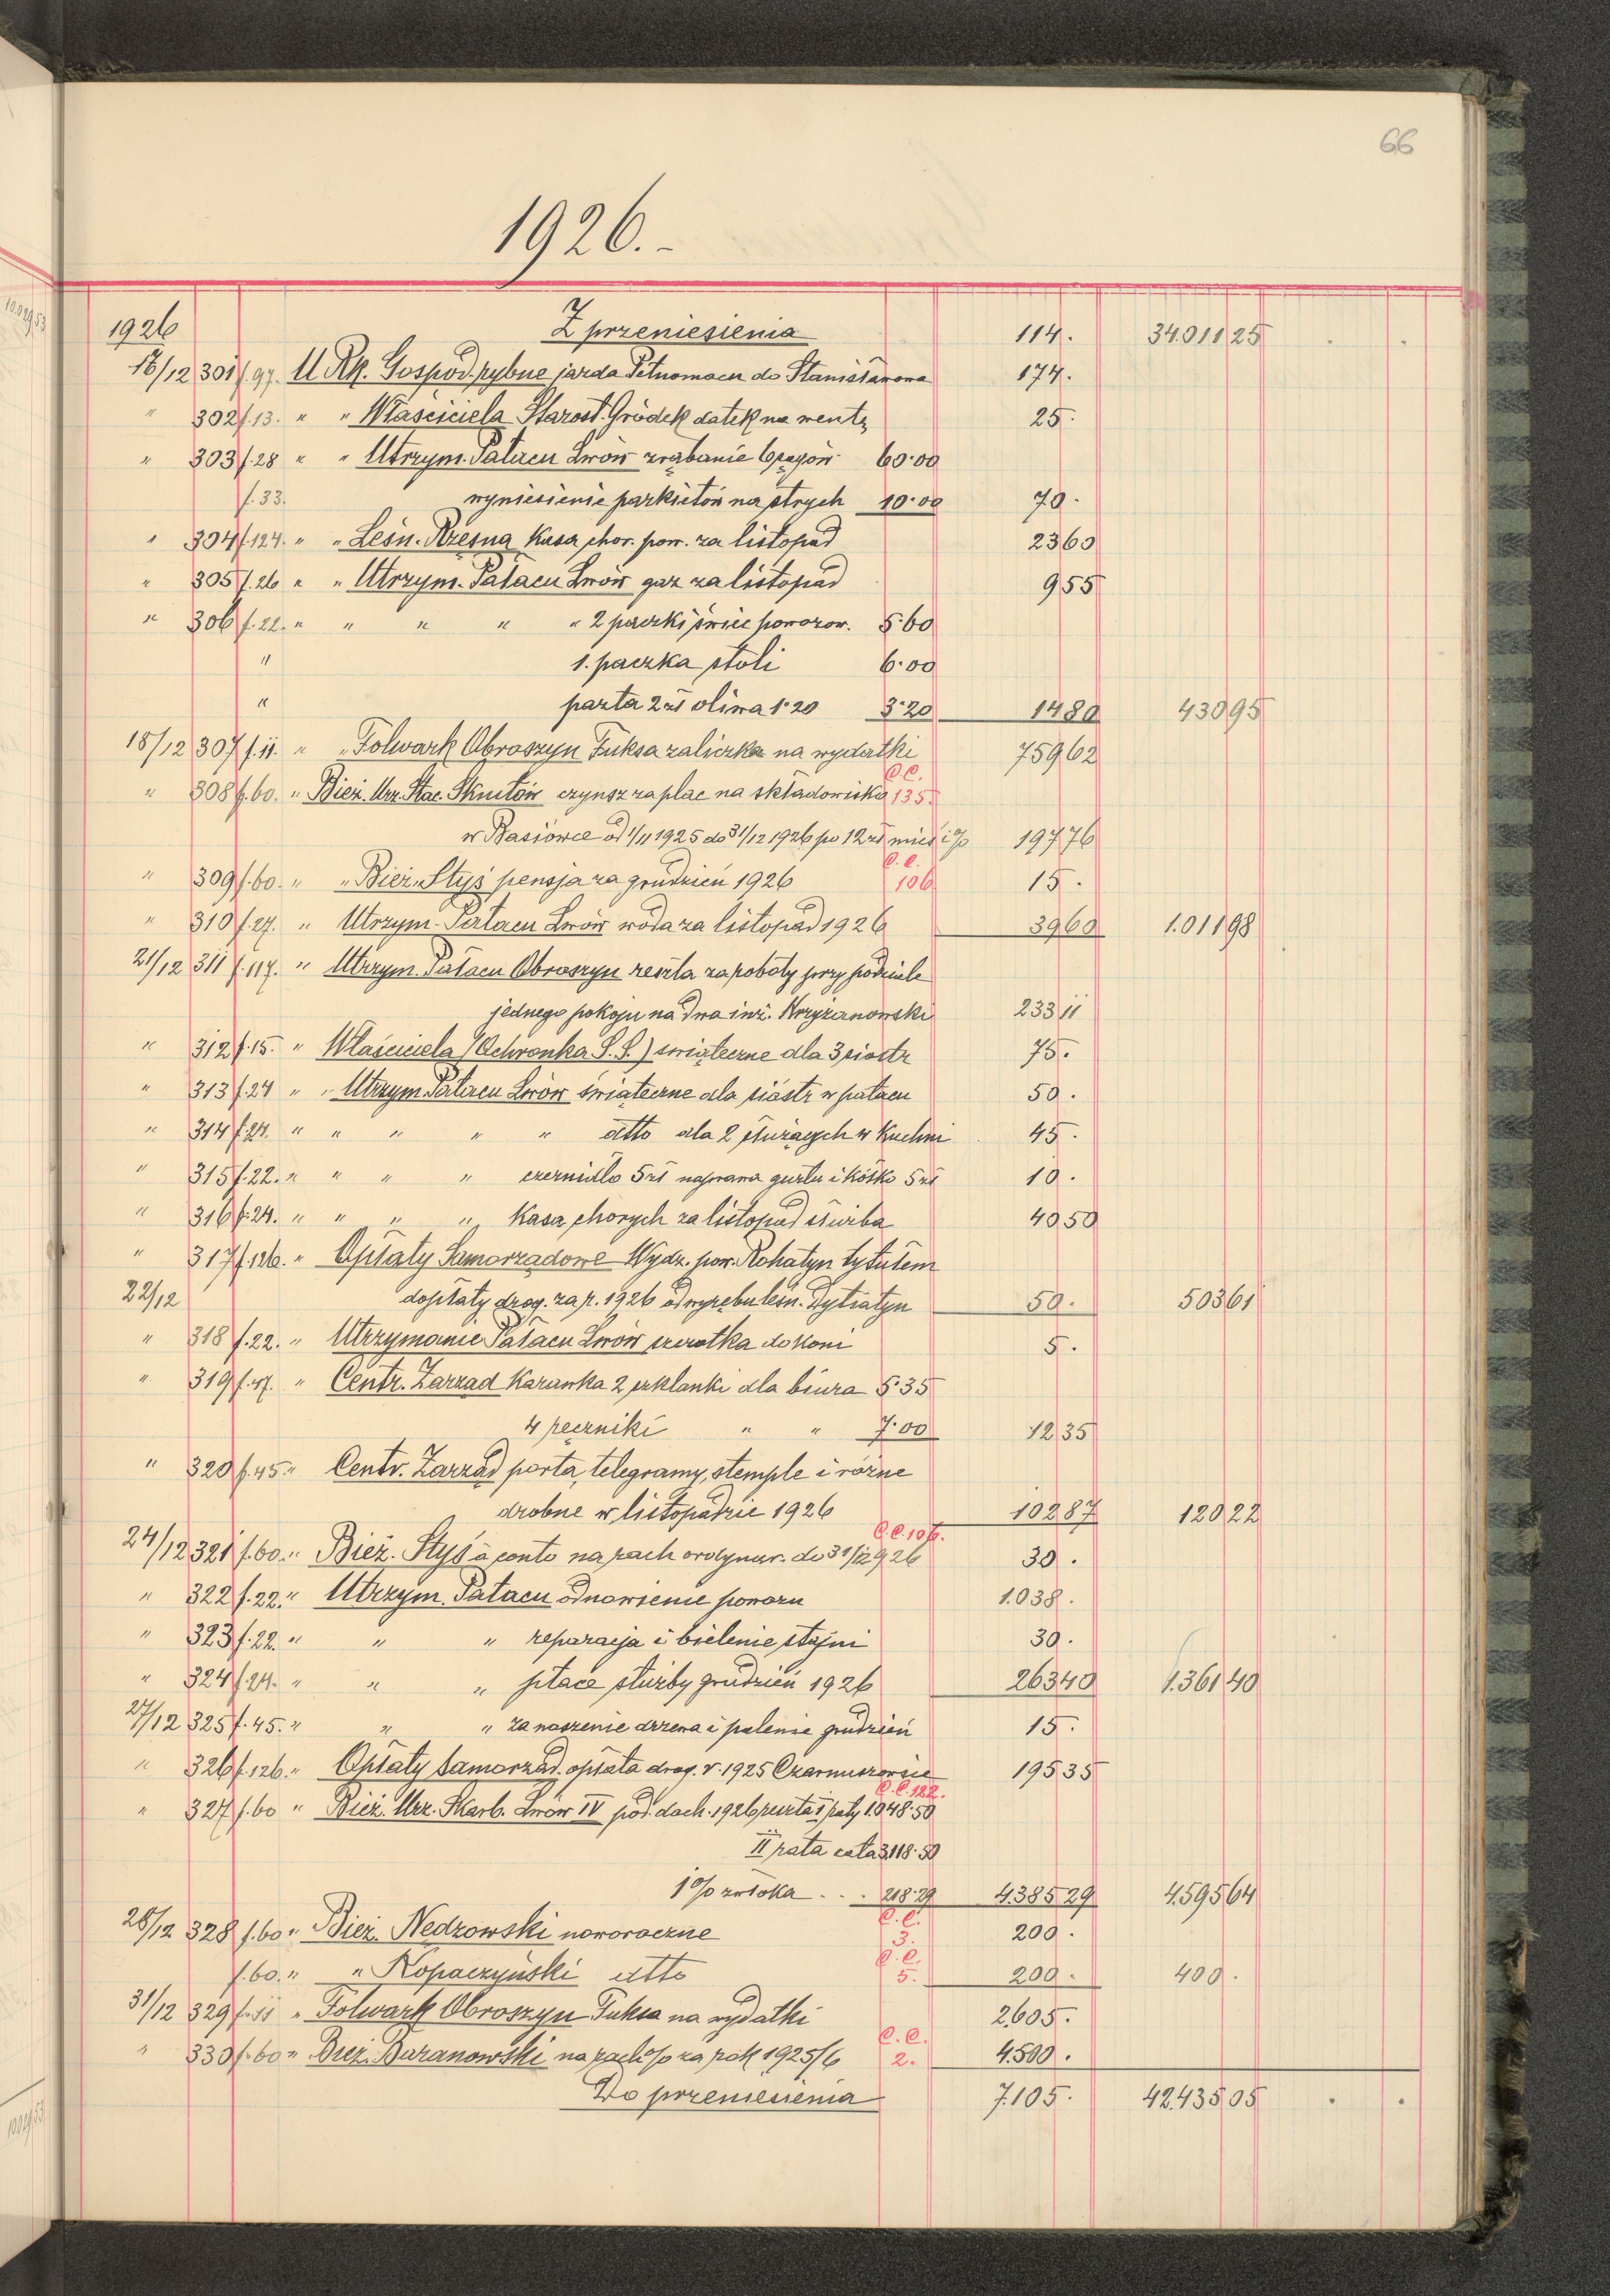 66
1926.-
1926 Z przeniesienia 114. 34.011 25 . .
16/12 301 f. 97. U Rk. Gospod. rybne jazda Petnomocn do Stanisławowa 174.
" 302 f. 13. " " Właściciela Starost. Gródek datek na wentę 25.
" 303 f. 28 " " Utrzym. Pałacu Lwów zrąbanie 6 sągów 60.00
f. 33. wyniesienie parkietów na strych 10.00 70.
" 304 f. 124. " " Leśn. Rzesna Kasa chor. pow. za listopad 23 60
" 305 f. 26 " " Utrzym. Pałacu Lwów gaz za listopad 9 55
" 306 f. 22. " " " " " 2 paczki świec powozow. 5.60
" 1. paczka stoli 6.00
" pasta 2 zł oliwa 1.20 3.20 14 80 430 95
18/12 307 f. 11. " " Folwark Obroszyn Fuksa zaliczka na wydatki 759 62
C.C.
" 308 f. 60. " Bież. Urz. Stac. Sknilów czynsz za plac na składowisko 135.
w Basiówce od 1/11 1925 do 31/12 1926 po 12 zł mies i % 197 76
C.C.
" 309 f. 60. " " Bież. Styś pensja za grudzień 1926 106 15.
" 310 f. 27. " Utrzym. Pałacu Lwów woda za listopad 1926 39 60 1.011 98
21/12 311 f. 117. " Utrzym. Pałacu Obroszyn reszta za roboty przy podziale
jednego pokoju na dwa inż. Krzyżanowski 233 11
" 312 f. 15. " Właściciela (Ochronka S.S.) świąteczne dla 3 siostr 75.
" 313 f. 24 " " Utrzym. Pałacu Lwów świąteczne dla sióstr w pałacu 50.
" 314 f. 24. " " " " " dtto dla 2 służących w Kuchni 45.
" 315 f. 22. " " " " czernidło 5 zł naprawa gurtu i kółko 5 zł 10.
" 316 f. 24. " " " " Kasa chorych za listopad służba 40 50
" 317 f. 126. " Opłaty Samorządowe Wydz. pow. Rohatyn tytułem
22/12 dopłaty drog. za r. 1926 od wyrębu leśn. Dytiatyn 50. 503 61
" 318 f. 22. " Utrzymanie Pałacu Lwów szczotka do koni 5.
" 319 f. 47. " Centr. Zarząd Karawka 2 szklanki dla biura 5.35
4 ręczniki " " 7.00 12 35
" 320 f. 45 " Centr. Zarząd porta, telegramy, stemple i różne
drobne w listopadzie 1926 102 87 120 22
C.C. 106.
24/12 321 f. 60. " Bież. Styś à conto na rach ordynar. do 31/12 926 30.
" 322 f. 22. " Utrzym. Pałacu odnowienie powozu 1.038.
" 323 f. 22. " " " reparacja i bielenie stajni 30.
" 324 f. 24. " " " płace służby grudzień 1926 263 40 1.361 40
27/12 325 f. 45. " " " za noszenie drzewa i palenie grudzień 15.
" 326 f. 126. " Opłaty Samorząd. opłata drog. r. 1925 Czarnuszowice 195 35
C.C. 122.
" 327 f. 60 " Bież. Urz. Skarb. Lwów IV pod. doch. 1926 reszta I raty 1.048.50
II rata cała 3.118.50
1% zwłoka . . . 218.29 4.385 29 4.595 64
C.C.
28/12 328 f. 60 " Bież. Nedzowski noworoczne 3. 200.
C.C.
f. 60. " " Kopaczyński dtto 5. 200. 400.
31/12 329 f. 11 " Folwark Obroszyn Fuksa na wydatki 2.605.
C.C.
" 330 f. 60 " Bież. Baranowski na rach % za rok 1925/6 2. 4.500.
Do przeniesienia 7.105. 42.435 05 . .